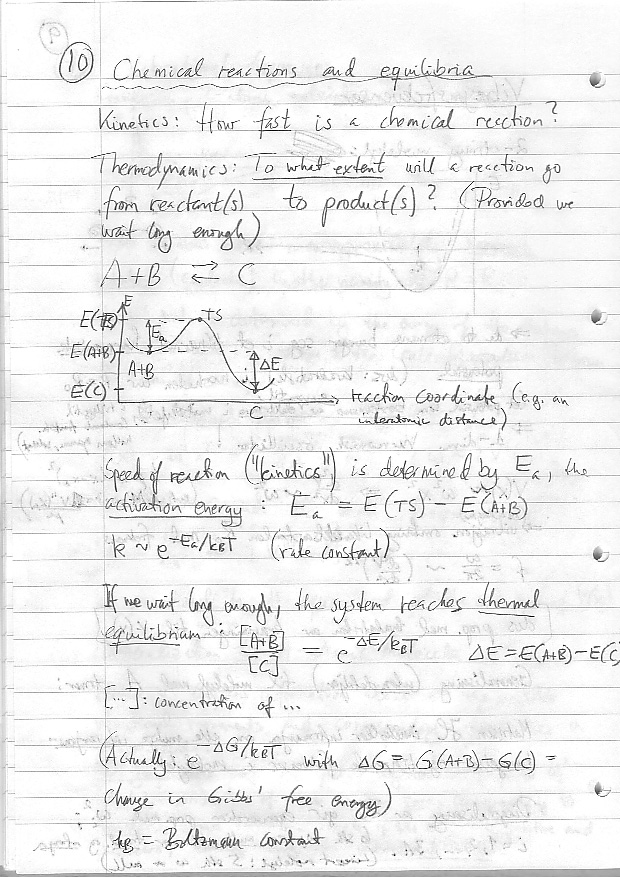 10 Chemical reactions and equilibria
Kinetics: How fast is a chemical reection?
Thermodynamics: To what extent will a reaction go
from reactant(s) to product(s)? (Provided we
wait long enough)
A+B ⇄ C
E
E(TS) TS
Ea
E(A+B) ΔE
A+B
E(C)
C
reaction coordinate (e.g. an
interatomic distance)
Speed of reaction ("kinetics") is determined by Ea, the
activation energy: Ea = E(TS) - E(A+B)
k ~ e^-Ea/kBT (rate constant)
If we wait long enough, the system reaches thermal
equilibrium: [A+B]/[C] = e^-ΔE/kBT ΔE=E(A+B)-E(C)
[...]: concentration of ...
(Actually: e^-ΔG/kBT with ΔG= G(A+B)-G(C) =
change in Gibbs' free energy)
kB = Boltzmann constant